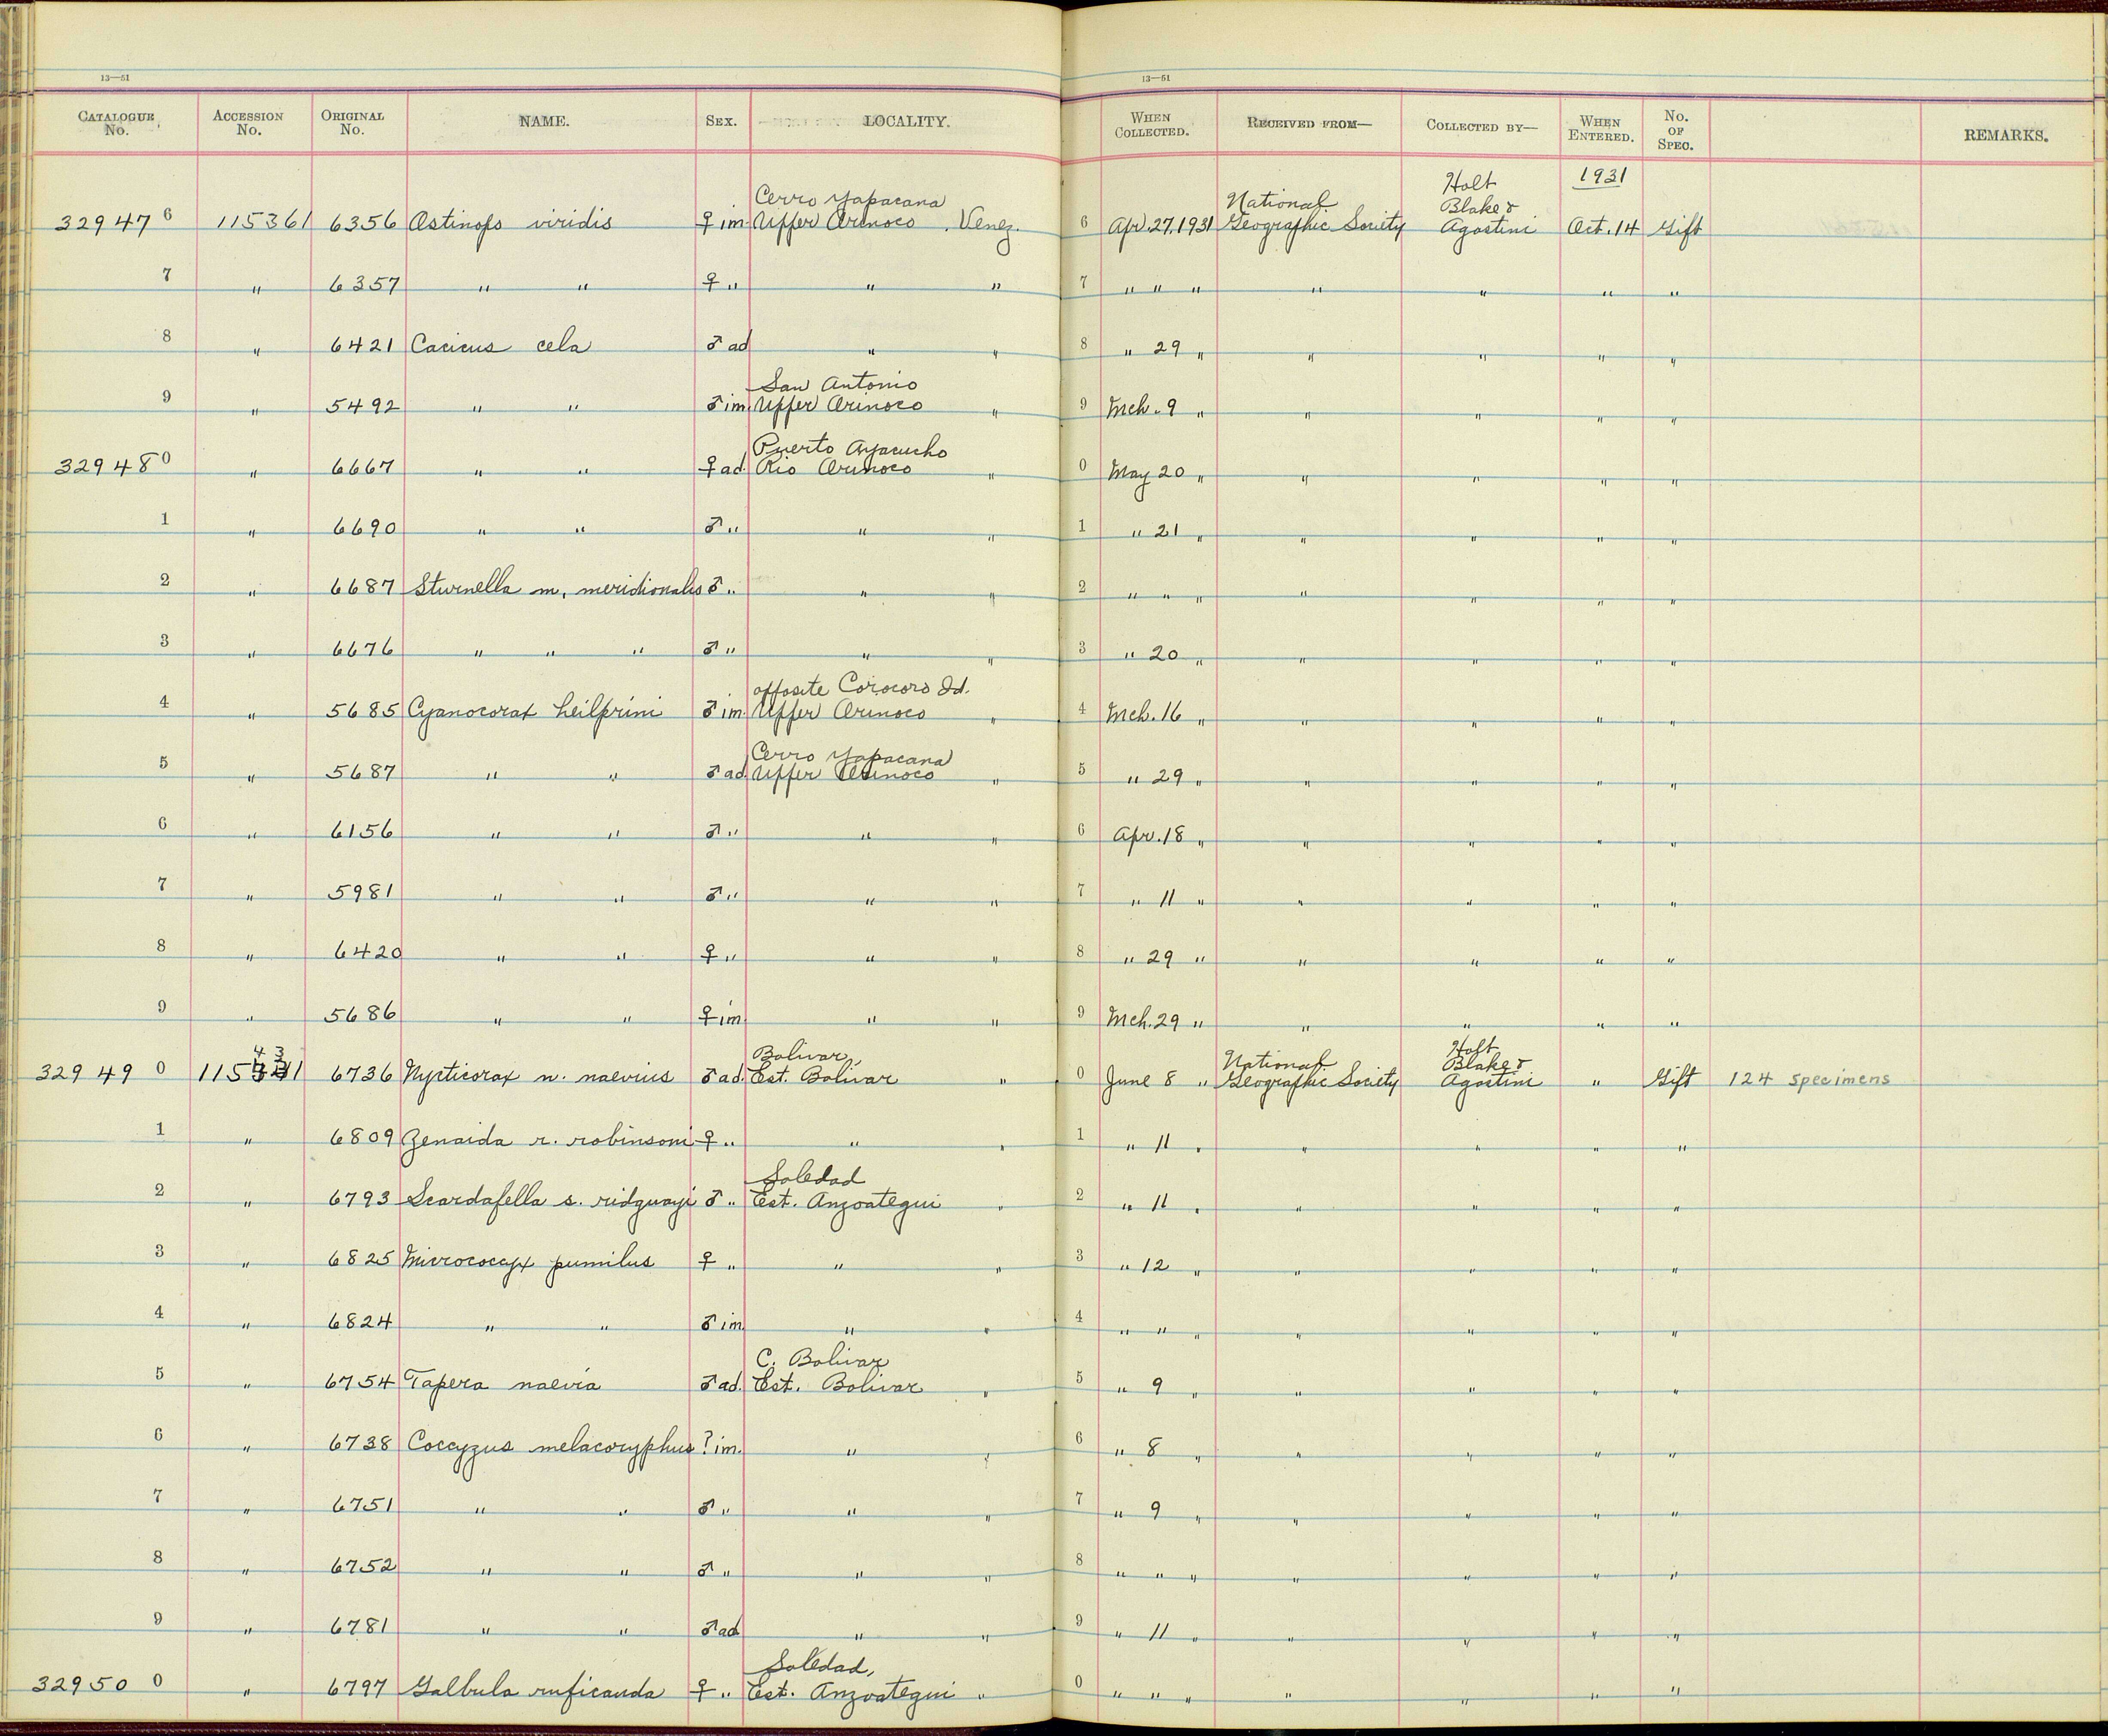 13—51 13—51
CATALOGUE No. ACCESSION No. ORIGINAL No. NAME. SEX. LOCALITY. WHEN COLLECTED. RECEIVED FROM— COLLECTED BY— WHEN ENTERED. No. OF SPEC. REMARKS.
1931
329476 115361 6356 Ostinops viridis ♀ im. Cerro Yapacana Upper Orinoco, Venez. 6 Apr. 27, 1931 National Geographic Society Holt Blake & Agostini Oct. 14 Gift
7 " 6357 " " ♀ " " " 7 " " " " " " "
8 " 6421 Cacicus cela ♂ ad " " 8 " 29 " " " " "
9 " 5492 " " ♂ im. San Antonio Upper Orinoco " 9 Mch. 9 " " " " "
329480 " 6667 " " ♀ ad. Puerto Ayacucho Rio Orinoco " 0 May 20 " " " " "
1 " 6690 " " ♂ " " " 1 " 21 " " " " "
2 " 6687 Sturnella m. meridionalis ♂ " " " 2 " " " " " " "
3 " 6676 " " " ♂ " " " 3 " 20 " " " " "
4 " 5685 Cyanocorax heilprini ♂ im. opposite Corocoro Id. Upper Orinoco " 4 Mch. 16 " " " " "
5 " 5687 " " ♂ ad. Cerro Yapacana Upper Orinoco " 5 " 29 " " " " "
6 " 6156 " " ♂ " " " 6 Apr. 18 " " " " "
7 " 5981 " " ♂ " " " 7 " 11 " " " " "
8 " 6420 " " ♀ " " " 8 " 29 " " " " "
9 " 5686 " " ♀ im " " 9 Mch. 29 " " " " "
329490 115431 6736 Nycticorax n. naevius ♂ ad. Bolivar, Est. Bolivar " 0 June 8 " National Geographic Society Holt Blake & Agostini " Gift 124 specimens
1 " 6809 Zenaida r. robinsoni ♀ " " " 1 " 11 " " " " "
2 " 6793 Scardafella s. ridgwayi ♂ " Soledad Est. Anzoategui " 2 " 11 " " " " "
3 " 6825 Micrococcyx pumilus ♀ " " " 3 " 12 " " " " "
4 " 6824 " " ♂ im " " 4 " " " " " " "
5 " 6754 Tapera naevia ♂ ad. C. Bolivar Est. Bolivar " 5 " 9 " " " " "
6 " 6738 Coccyzus melacoryphus ? im. " " 6 " 8 " " " " "
7 " 6751 " " ♂ " " " 7 " 9 " " " " "
8 " 6752 " " ♂ " " " 8 " " " " " " "
9 " 6781 " " ♂ ad " " 9 " 11 " " " " "
329500 " 6797 Galbula ruficauda ♀ " Soledad, Est. Anzoategui " 0 " " " " " " "